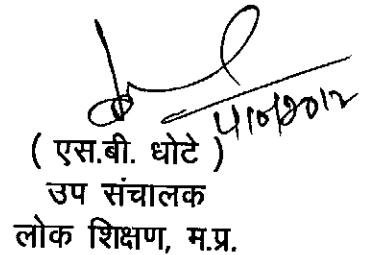 4/10/2012
( एस.बी. धोटे )
उप संचालक
लोक शिक्षण, म.प्र.